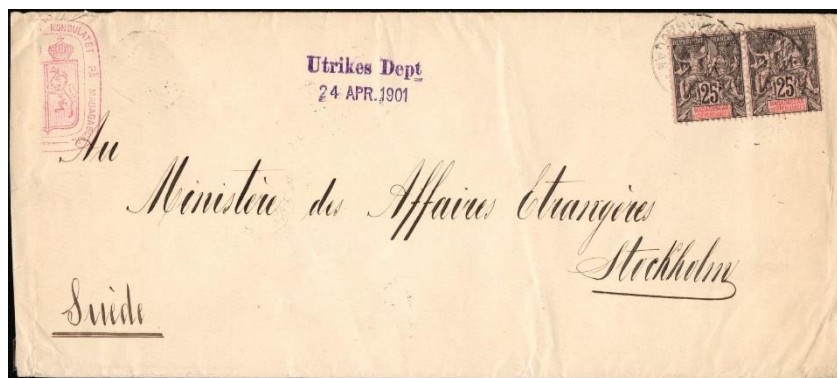 KONSULATET PÅ MADAGASCAR
Utrikes Dept
24 APR.1901
25
25
Au
Ministère des Affaires Etrangères
Stockholm
Suède